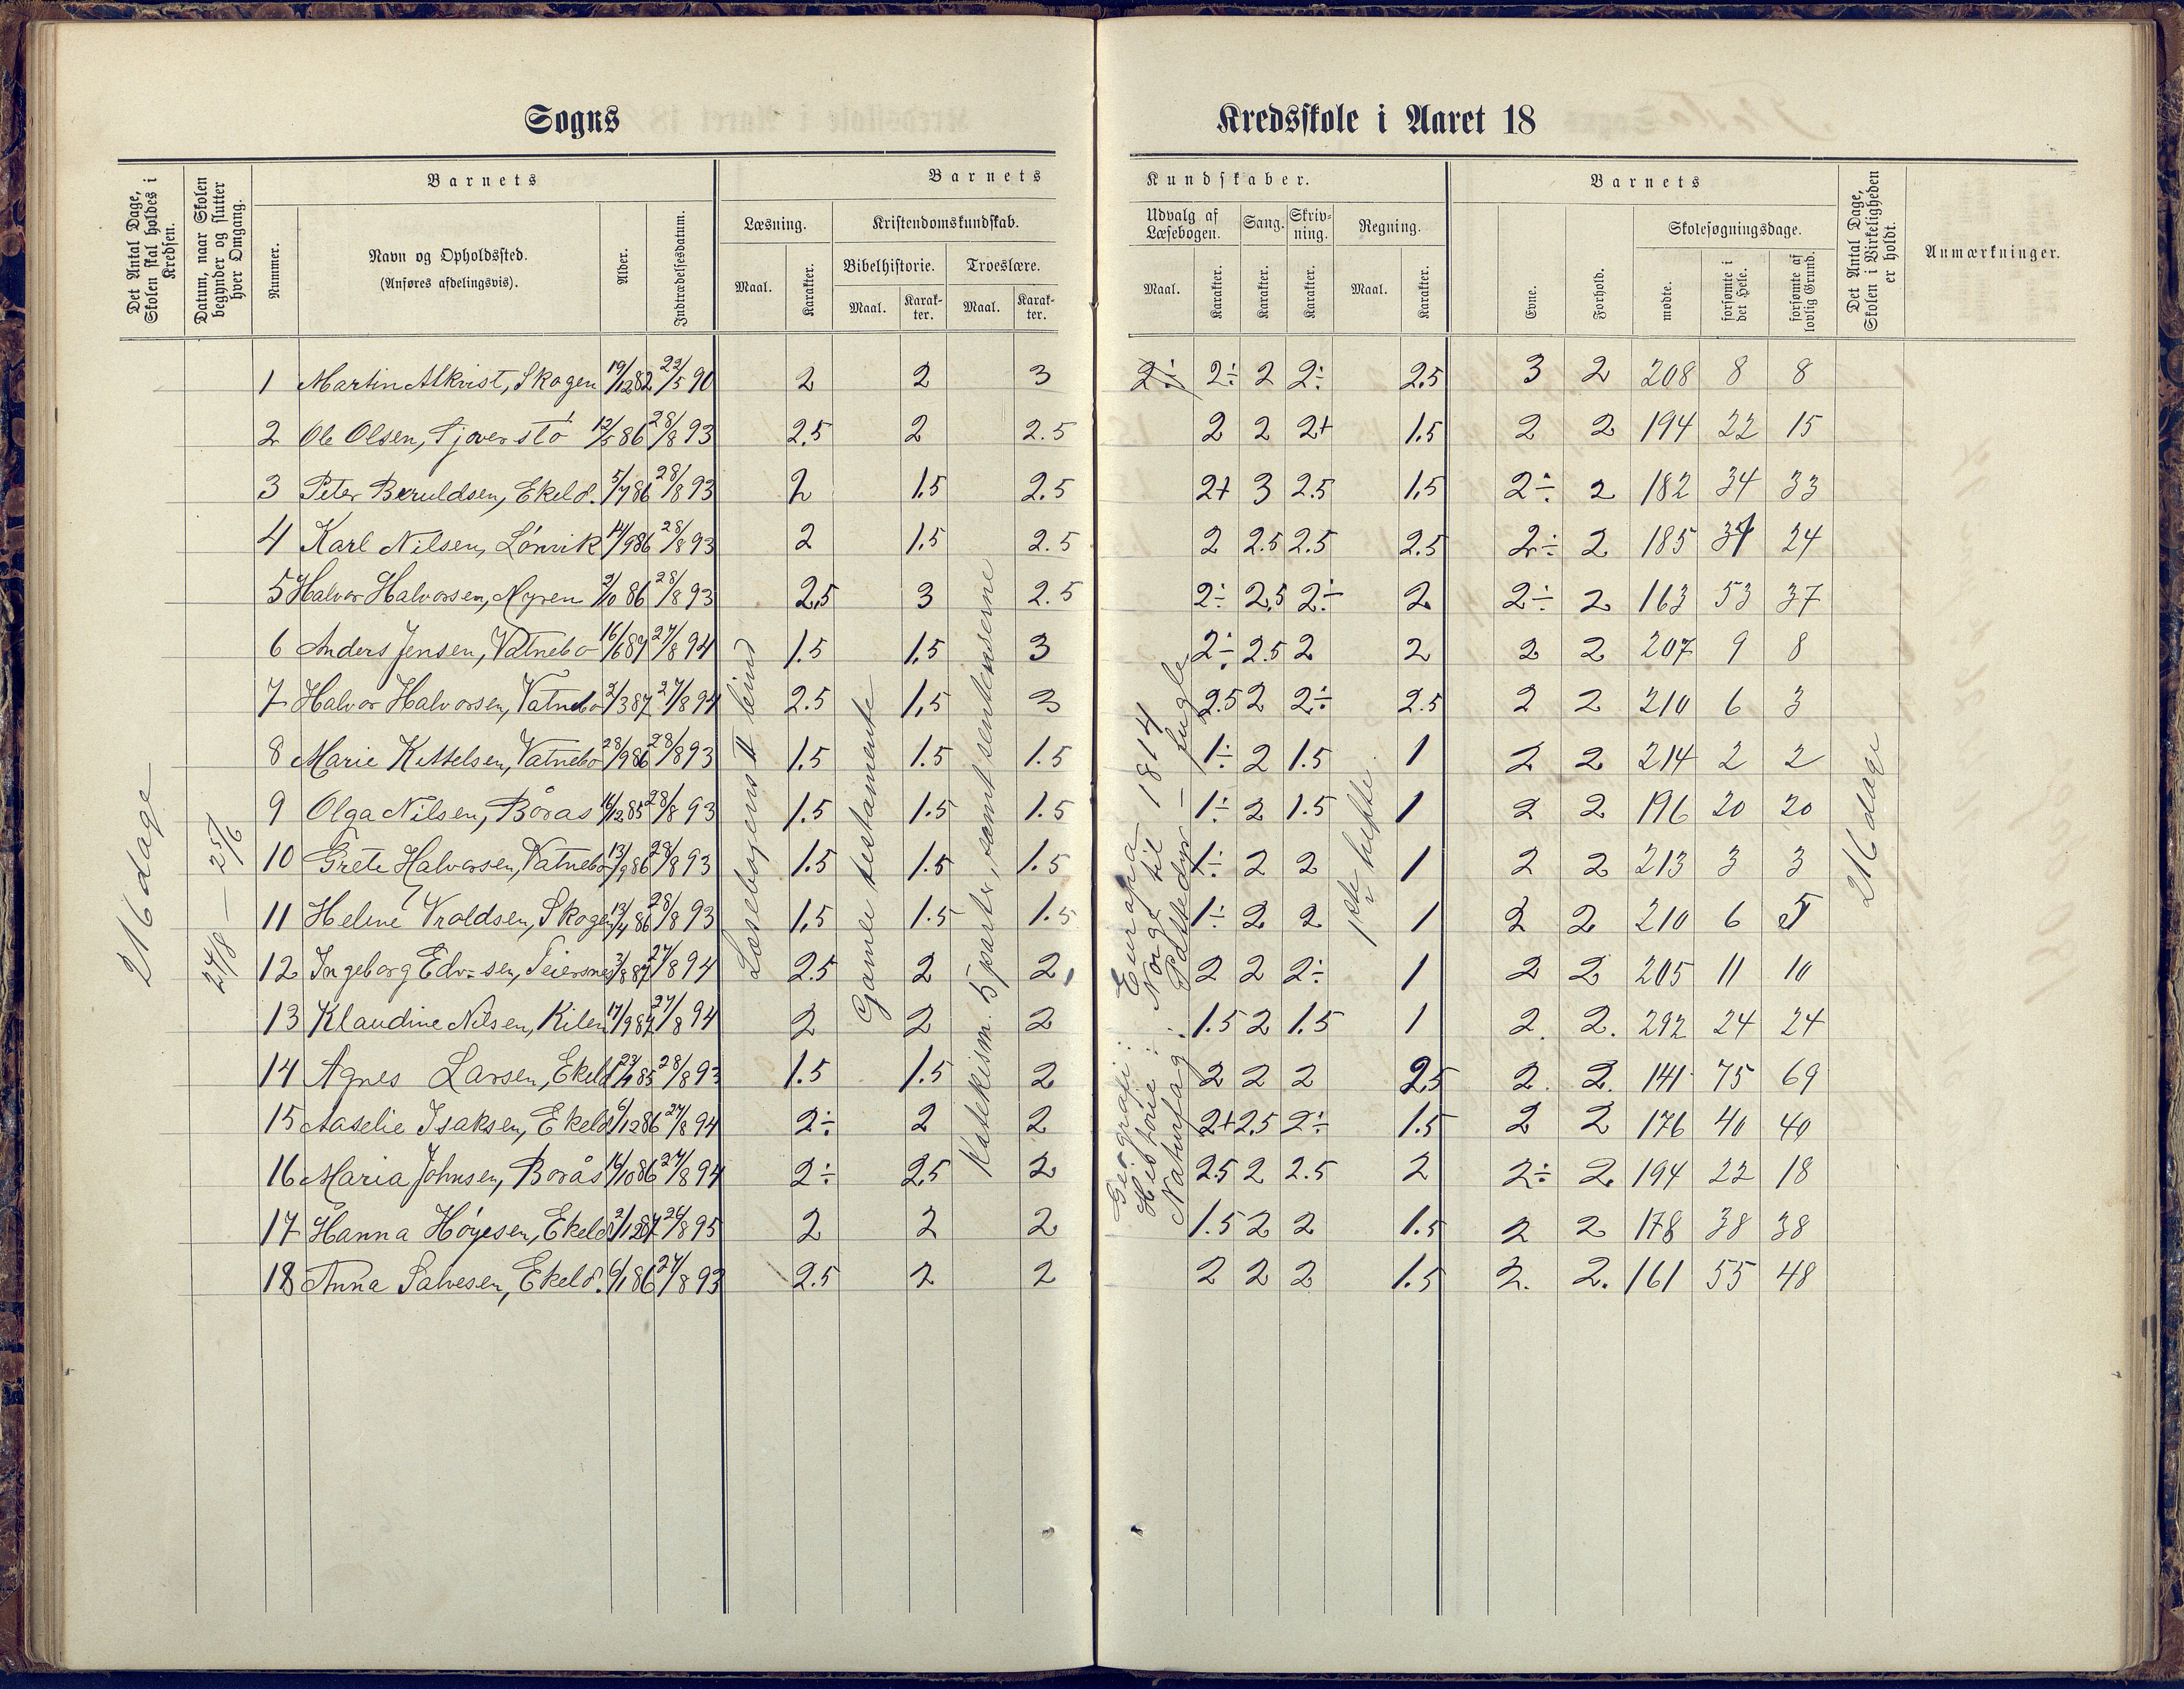 Sogns
Kredsskole i Aaret 18
Det Antal Dage, Skolen skal holdes i Kredsen.
Datum, naar Skolen begynder og slutter hver Omgang.
Barnets
Nummer.
Navn og Opholdssted.
(Anføres afdelingsvis).
Alder.
Indtrædelsesdatum.
Barnets
Læsning.
Maal.
Karakter.
Kristendomskundskab.
Bibelhistorie.
Maal.
Karakter.
Troeslære.
Maal.
Karakter.
Kundskaber.
Udvalg af Læsebogen.
Maal.
Karakter.
Sang.
Karakter.
Skrivning.
Karakter.
Regning.
Maal.
Karakter.
Barnets
Evne.
Forhold.
Skolesøgningsdage.
mødte.
forsømte i det Hele.
forsømte af lovlig Grund.
Det Antal Dage, Skolen i Virkeligheden er holdt.
Anmærkninger.
216 dage
24/8 — 25/6
Læsebogens II bind
Gamle testamente
Katekism. 5 parter, samt sentenserne
Geografi: Europa
Historie: Norge til 1814
Naturfag: Pattedyr — fugle
1ste hefte
216 dage
1 Martin Alkvist, Skogen 19/12 82 22/5 90 2 2 3 2÷ 2÷ 2 2÷ 2.5 3 2 208 8 8
2 Ole Olsen, 12/5 86 28/8 93 2.5 2 2.5 2 2 2+ 1.5 2 2 194 22 15
3 Peter Beruldsen, Ekeld. 5/7 86 28/8 93 2 1.5 2.5 2+ 3 2.5 1.5 2÷ 2 182 34 33
4 Karl Nilsen, Lønvik 14/9 86 28/8 93 2 1.5 2.5 2 2.5 2.5 2.5 2÷ 2 185 31 24
5 Halvor Halvorsen, Myren 2/10 86 28/8 93 2.5 3 2.5 2÷ 2.5 2÷ 2 2÷ 2 163 53 37
6 Anders Jensen, Vatnebo 16/6 87 27/8 94 1.5 1.5 3 2÷ 2.5 2 2 2 2 207 9 8
7 Halvor Halvorsen, Vatnebo 2/3 87 27/8 94 2.5 1.5 3 2.5 2 2÷ 2.5 2 2 210 6 3
8 Marie Kittelsen, Vatnebo 28/9 86 28/8 93 1.5 1.5 1.5 1÷ 2 1.5 1 2 2 214 2 2
9 Olga Nilsen, Borås 16/12 85 28/8 93 1.5 1.5 1.5 1÷ 2 1.5 1 2 2 196 20 20
10 Grete Halvorsen, Vatnebo 13/9 86 28/8 93 1.5 1.5 1.5 1÷ 2 2 1 2 2 213 3 3
11 Helene Vroldsen, Skogen 13/4 86 28/8 93 1.5 1.5 1.5 1÷ 2 2 1 2 2 210 6 5
12 Ingeborg Edv-sen, Teiersnes 3/8 87 27/8 94 2.5 2 2 2 2 2÷ 1 2 2 205 11 10
13 Klaudine Nilsen, Kilen 17/9 87 27/8 94 2 2 2 1.5 2 1.5 1 2. 2. 292 24 24
14 Agnes Larsen, Ekeld 23/4 85 28/8 93 1.5 1.5 2 2 2 2 2.5 2. 2. 141 75 69
15 Aaselie Isaksen, Ekeld 6/12 86 27/8 94 2÷ 2 2 2+ 2.5 2÷ 1.5 2 2 176 40 40
16 Maria Johnsen, Borås 16/10 86 27/8 94 2÷ 2.5 2 2.5 2 2.5 2 2÷ 2. 194 22 18
17 Hanna Høyesen, Ekeld 2/12 87 26/8 95 2 2 2 1.5 2 2 1.5 2 2 178 38 38
18 Anna Salvesen, Ekeld. 6/1 86 27/8 93 2.5 2 2 2 2 2 1.5 2. 2. 161 55 48